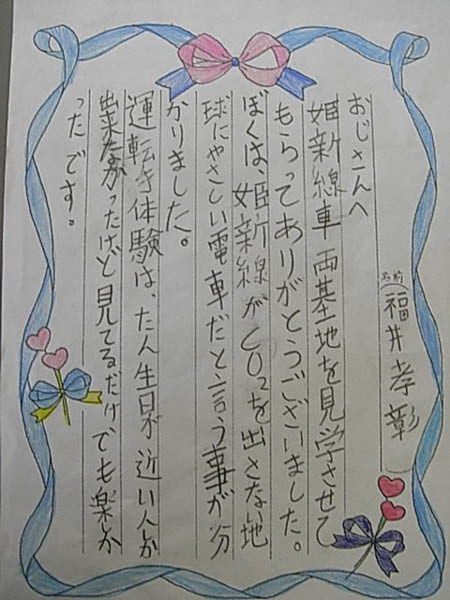 名前(福井孝彰)
おじさんへ
姫新線車両基地を見学させて
もらってありがとうございました。
ぼくは、姫新線がCO₂を出さない地
球にやさしい電車だと言う事が分
かりました。
運転き体験は、たん生日が近い人しか
出来なかったけど見てるだけでも楽しか
ったです。